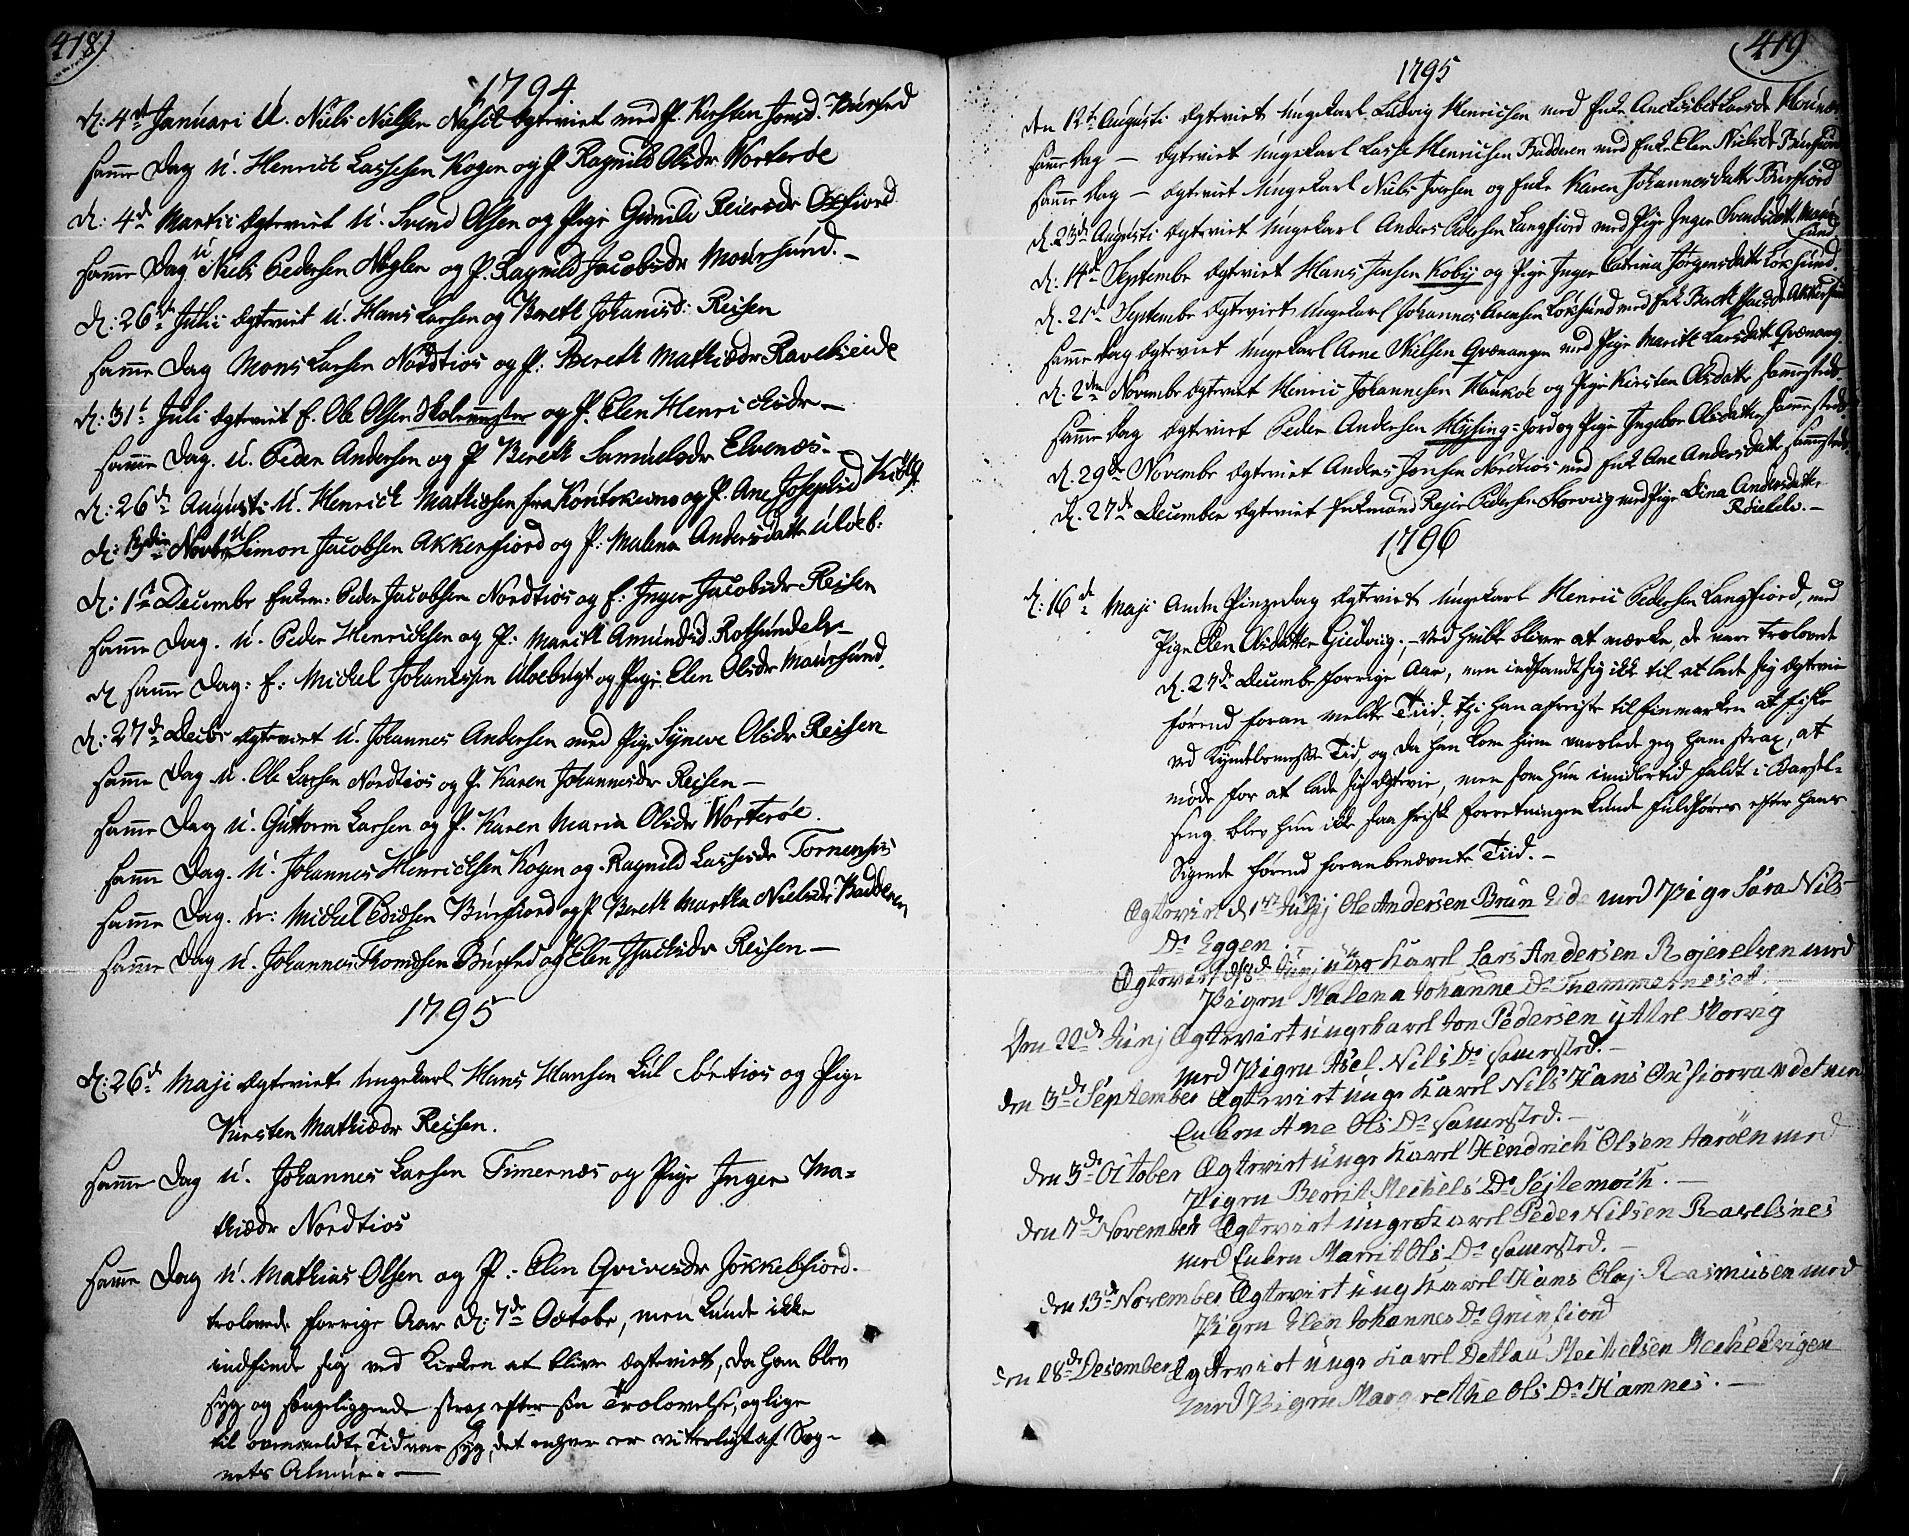 418
1794
d: 4de Januari U. Niels Nielsen ægteviet med P. Kirsten Burfied
samme Dag U. Henrich Lassesen Kogen og P. Ragnild Olsdr Worterøe
d: 4de Martii ægteviet U. Svend Olsen og Pige Gunnild Reiersdr Oxfiord
samme Dag U. Niels Pedersen og P. Ragnild Jacobsdr Mouersund. –
d: 26de Julii ægteviet U. Hans Larsen og Bereth Johanisd: Reisen
samme Dag Mons Larsen Nordtios og P: Bereth Mathisdr Ravelseide
d: 31te Juli ægteviet E. Ole Olsen Skolemester og P. Elen Henrichsdr –
samme Dag. U. Peder Andersen og P Bereth Samuelsdr Elvenæs –
d: 26de Augusti U. Henrich Mathisen fra Koutokeino og P. Ane Josephsd
d: Novbr U Simon Jacobsen Akkerfiord og P: Malena Andersdatter Uløeb:
d: 1te Decembr Enkem: Peder Jacobsen Nordtios og E: Inger Jacobsdr Reisen
samme Dag. U. Peder Henrichsen og P: Marith Amundsd. Rotsundelv –
d samme Dag: E: Michel Johanissen Uløebugt og Pige Elen Olsdr Mauersund.
d: 27de Decbr ægteviet U. Johannes Andersen med Pige Syneve Olsdr Reisen
samme Dag U. Ole Larsen Nordtios og P. Karen Johannesdr Reisen –
samme Dag U. Guttorm Larsen og P. Karen Maria Olsdr Worterøe.
samme Dag. U. Johannes Henrichsen Kogen og Ragnild Lassesdr Tornensis
samme Dag. U: Michel Burfiord og P Bereth Martha Nielsdr Badderen
samme Dag U. Johannes Thomesen Burfied og Elen Isachsdr Reisen –
1795
d: 26de Maji ægteviet Ungekarl Hans Hansen Lül Sørtios og Pige
Kirsten Mathisdr Reisen.
samme Dag U. Johannes Larsen Timernæs og Pige Inger Ma=
thisdr Nordtios
samme Dag U. Mathias Olsen og P: Elen Qvivesdr Jøkkelfiord.
trolovede forrige Aar d: 7de Octobr, men kunde ikke
indfinde sig ved Kirken at blive ægteviet, da han blev
syg og sengeliggende strax efter sin Trolovelse, og lige
til ovenmeldte Tid var syg, det enhver er vitterligt af Sog-
nets Almue. –
419
1795
den 12te Augusti ægteviet Ungekarl Ludvig Henrichsen med Enke Ane Lisbet Larsdr
samme Dag – ægteviet Ungekarl Lasse Henrichsen Badderen med Enke Elen Nielsdr Burfiord
samme Dag – ægteviet Ungekarl Niels Iversen og Enke Karen Johannesdatter Burfiord
d. 23de Augusti ægteviet Ungekarl Anders Pedersen Langfiord med Pige Inger Svendsdatter Maur-
sund
d: 14de Septembr ægteviet Hans Jensen Koby og Pige Inger Catrina Jørgensdatter Loxsund.
d. 21de Septembr ægteviet Ungekarl Johannes Arensen Loxsund med Enke Bereth
samme Dag ægteviet Ungekarl Arne Nielsen Qvænangen med Pige Marith Larsdatter Qvænang
d. 2den Novembr ægteviet Henric Johannesen Haukøe og Pige Kirsten Olsdatter sammesteds
samme Dag ægteviet Peder Andersen Hysing=jord og Pige Ingebor Olsdatter sammesteds
d. 29de Novembr ægteviet Anders Jonsen Nordtios med Enke Ane Andersdatter sammesteds
d. 27de December ægteviet Enkemand Pedersen Storvig med Pige Dina Andersdatter
Röiekelv. –
1796
d: 16de Maji Anden Pinzedag ægteviet Ungekarl Henric Pedersen Langfiord, med
Pige Elen Olsdatter Giedvig. – Ved hvilke bliver at mærke, de vare trolovede
d. 27de Decembr forrige Aar, men indfandt sig ikke til at lade sig ægtevie
førend foran meldte Tiid, thi han afreiste til Finmarken at fiske
ved Kyndelsmesse Tid, og da han kom hiem varslede jeg ham strax, at
møde for at lade sig ægtevie, men som hun imidlertid faldt i Barsel-
seng blev hun ikke saa frisk forretningen kunde fuldføres efter hans
Sigende førend foranbenævnte Tiid. –
Ægteviet d 1te Julij Ole Andersen Brun Eide med Pige Sara Nils
Dr Eggen
Ægteviet d 18de Junj unge Karl Lars Andersen Røjerelven med
Pigen Malena Johanne Dr Trommesneset. –
Den 22de Junj Ægteviet unge karl Jon Pedersen yttre Skorvig
med Pigen Asel Nils Dr samested. –
den 3de September Ægteviet unge Karl Nils Hans Oxfiorvandet med
Enken Ane Ols Dr samested. –
den 3de October Ægteviet unge Karl Hendrich Olsen Aarøen med
Pigen Berrit Meikels Dr Sejtemoch. –
den 7de November Ægteviet unge Karl Peder Nilsen Ravelsnes
med Enken Marrit Ols Dr samested. –
den 13de November Ægteviet ung Karl Hans Olaj Rasmusen med
Pigen Elen Johannes Dr Grunfiord
den 28de Desember Ægteviet unge Karl Detlau Meikelsen Meikelvigen
med Pigen Margrethe Ols Dr Hamnes. –